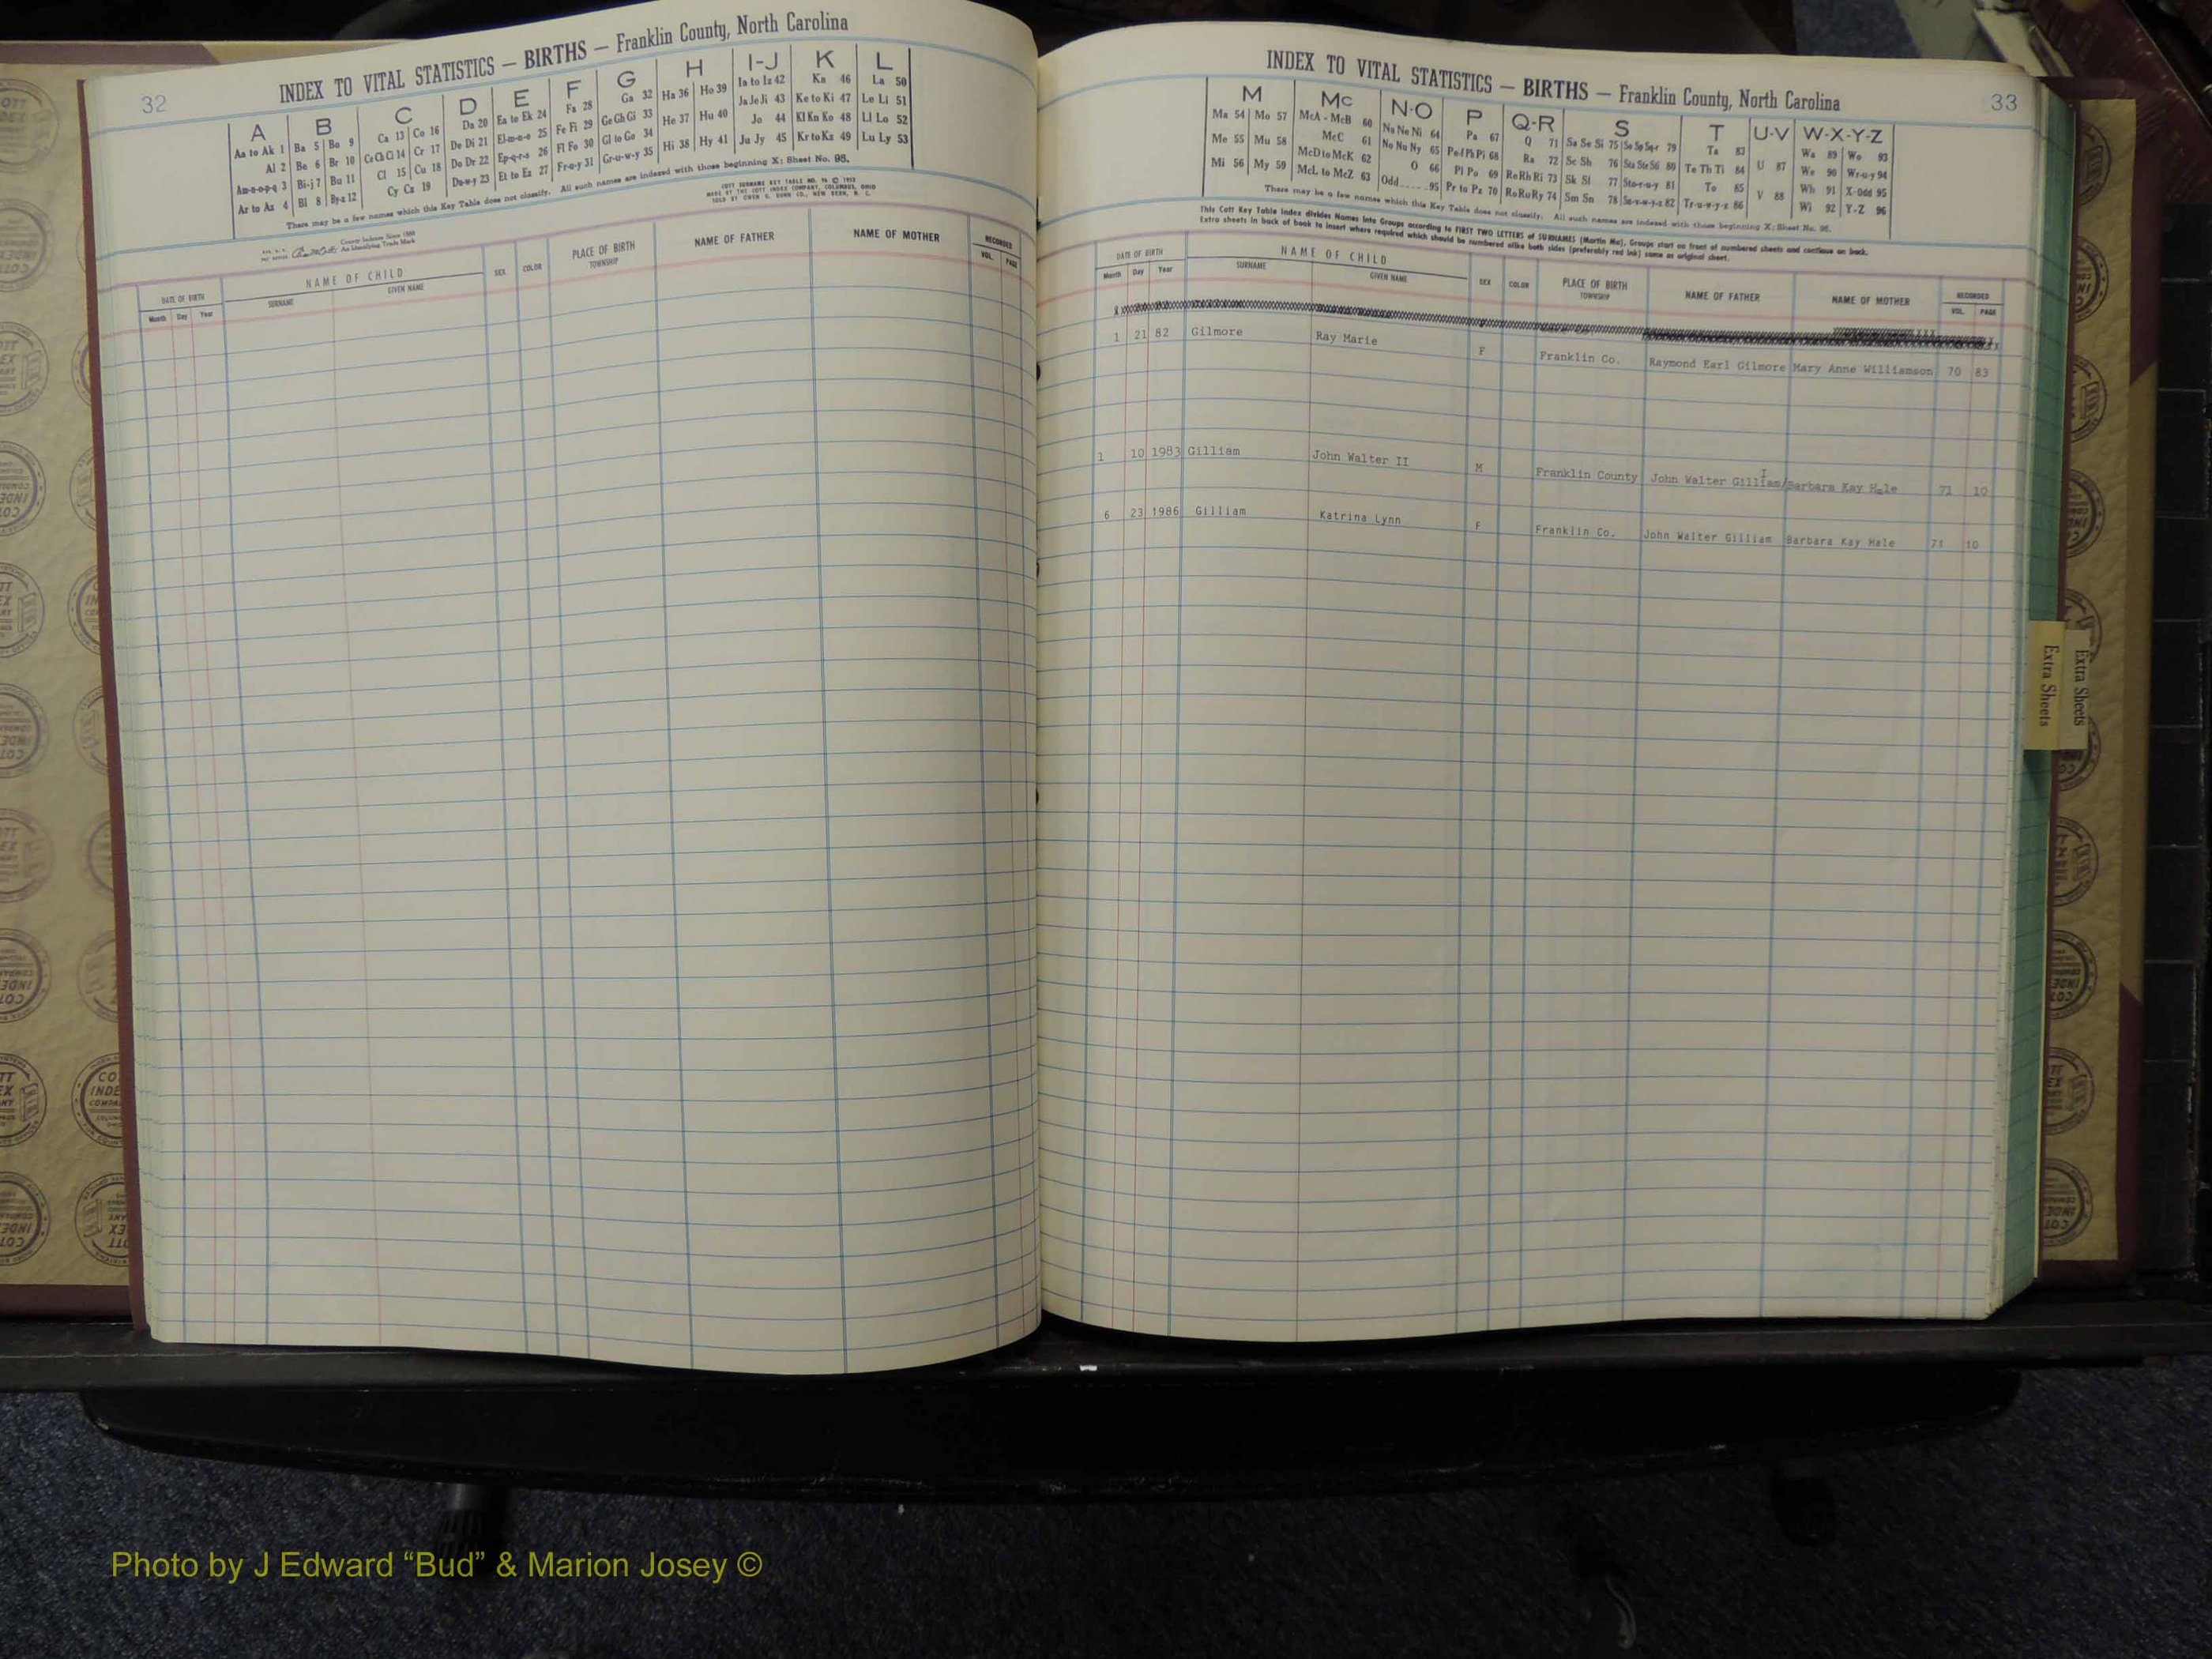 32
INDEX TO VITAL STATISTICS — BIRTHS — Franklin County, North Carolina
A B C D E F G H I-J K L
Aa to Ak 1 Ba 5 Bo 9 Ca 13 Co 16 Da 20 Ea to Ek 24 Fa 28 Ga 32 Ha 36 Ho 39 Ia to Iz 42 Ka 46 La 50
Al 2 Be 6 Br 10 Ce Ch Ci 14 Cr 17 De Di 21 El-m-n-o 25 Fe Fi 29 Ge Gh Gi 33 He 37 Hu 40 Ja Je Ji 43 Ke to Ki 47 Le Li 51
Am-n-o-p-q 3 Bi-j 7 Bu 11 Cl 15 Cu 18 Do Dr 22 Ep-q-r-s 26 Fl Fo 30 Gl to Go 34 Hi 38 Hy 41 Jo 44 Kl Kn Ko 48 Ll Lo 52
Ar to Az 4 Bl 8 By-z 12 Cy Cz 19 Du-w-y 23 Et to Ez 27 Fr-u-y 31 Gr-u-w-y 35 Ju Jy 45 Kr to Kz 49 Lu Ly 53
There may be a few names which this Key Table does not classify. All such names are indexed with those beginning X; Sheet No. 95.
COTT SURNAME KEY TABLE NO. 96 © 1953
MADE BY THE COTT INDEX COMPANY, COLUMBUS, OHIO
SOLD BY OWEN G. DUNN CO., NEW BERN, N. C.
County Indexes Since 1888
An Identifying Trade Mark
DATE OF BIRTH NAME OF CHILD SEX COLOR PLACE OF BIRTH NAME OF FATHER NAME OF MOTHER RECORDED
Month Day Year SURNAME GIVEN NAME TOWNSHIP VOL. PAGE
INDEX TO VITAL STATISTICS — BIRTHS — Franklin County, North Carolina
33
M Mc N-O P Q-R S T U-V W-X-Y-Z
Ma 54 Mo 57 McA - McB 60 Na Ne Ni 64 Pa 67 Q 71 Sa Se Si 75 So Sp Sq-r 79 Ta 83 Wa 89 Wo 93
Me 55 Mu 58 McC 61 No Nu Ny 65 Pe-f Ph Pi 68 Ra 72 Sc Sh 76 Sta Ste Sti 80 Te Th Ti 84 U 87 We 90 Wr-u-y 94
Mi 56 My 59 McD to McK 62 O 66 Pl Po 69 Re Rh Ri 73 Sk Sl 77 Sto-r-u-y 81 To 85 Wh 91 X-Odd 95
McL to McZ 63 Odd 95 Pr to Pz 70 Ro Ru Ry 74 Sm Sn 78 Su-v-w-y-z 82 Tr-u-w-y-z 86 V 88 Wi 92 Y-Z 96
There may be a few names which this Key Table does not classify. All such names are indexed with those beginning X; Sheet No. 95.
This Cott Key Table Index divides Names into Groups according to FIRST TWO LETTERS of SURNAMES (Martin Ma), Groups start on front of numbered sheets and continue on back.
Extra sheets in back of book to insert where required which should be numbered alike both sides (preferably red ink) same as original sheet.
DATE OF BIRTH NAME OF CHILD SEX COLOR PLACE OF BIRTH NAME OF FATHER NAME OF MOTHER RECORDED
Month Day Year SURNAME GIVEN NAME TOWNSHIP VOL. PAGE
1 21 82 Gilmore Ray Marie F Franklin Co. Raymond Earl Gilmore Mary Anne Williamson 70 83
1 10 1983 Gilliam John Walter II M Franklin County John Walter Gilliam/I Barbara Kay Hale 71 10
6 23 1986 Gilliam Katrina Lynn F Franklin Co. John Walter Gilliam Barbara Kay Hale 71 10
Extra Sheets
Extra Sheets
Photo by J Edward “Bud” & Marion Josey ©